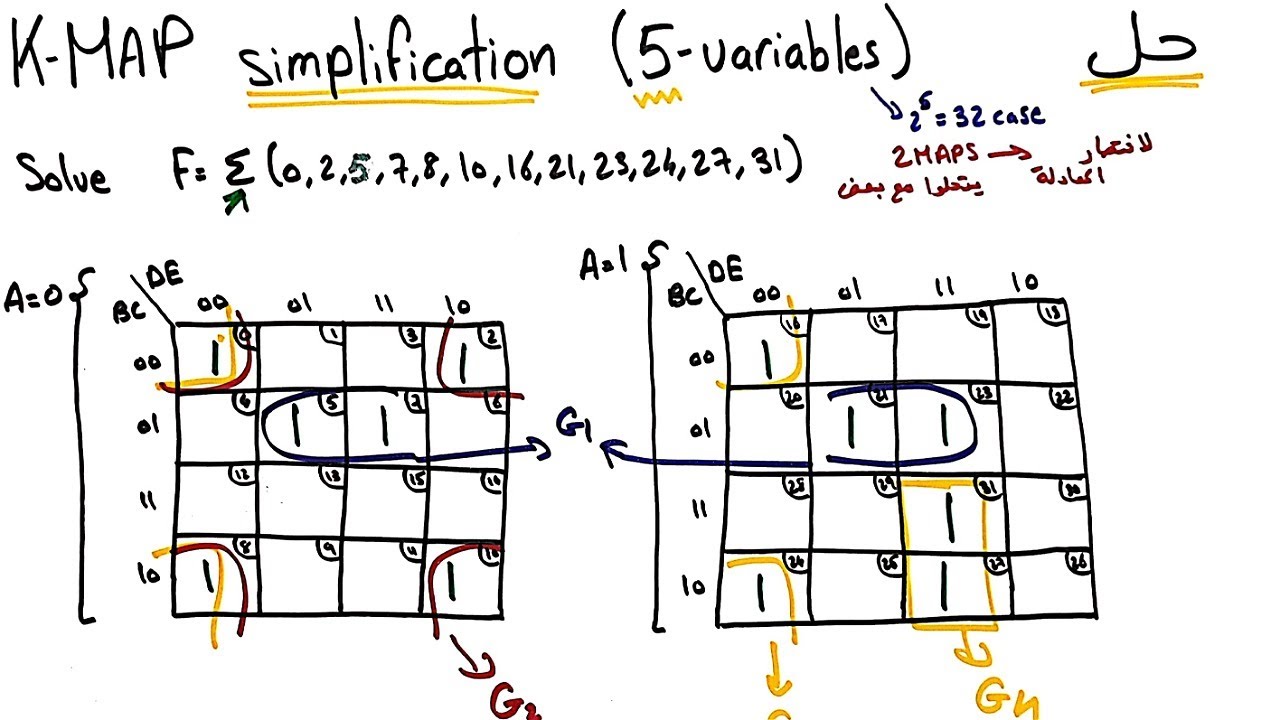 K-MAP simplification (5-variables) حل
2^5 = 32 case
Solve F= Σ (0,2,5,7,8,10,16,21,23,24,27,31)
2 MAPS → لاختصار المعادلة
يتحلوا مع بعض
A=0
DE
BC 00 01 11 10
00 1 0 1 3 1 2
01 4 1 5 1 7 6
11 12 13 15 14
10 1 8 9 11 1 10
A=1
DE
BC 00 01 11 10
00 1 16 17 19 18
01 20 1 21 1 23 22
11 28 29 1 31 30
10 1 24 25 1 27 26
G1
G2
G4